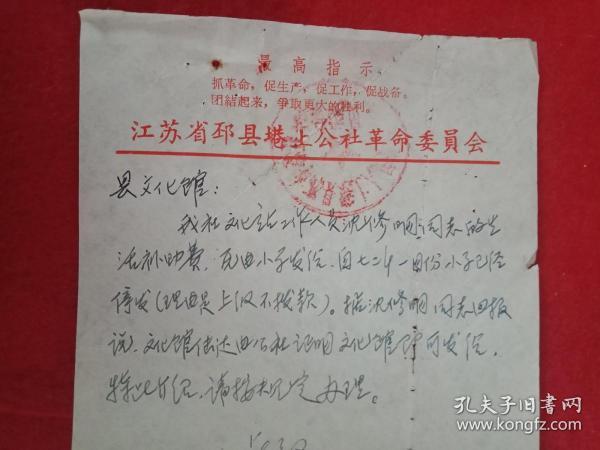 最高指示
抓革命，促生产，促工作，促战备。
团結起来，爭取更大的胜利。
江苏省邳县塂上公社革命委員会
县文化馆：
我社文化站工作人员沈修明同志的生
活补助费，小学发给，自七二年一月份小学已经
停发（理由是上级不拨款）。据沈修明同志回报
说，文化馆传达由公社证明文化馆即可发给，
特此介绍，请按规定办理。
孔夫子旧书网
www.kongfz.com